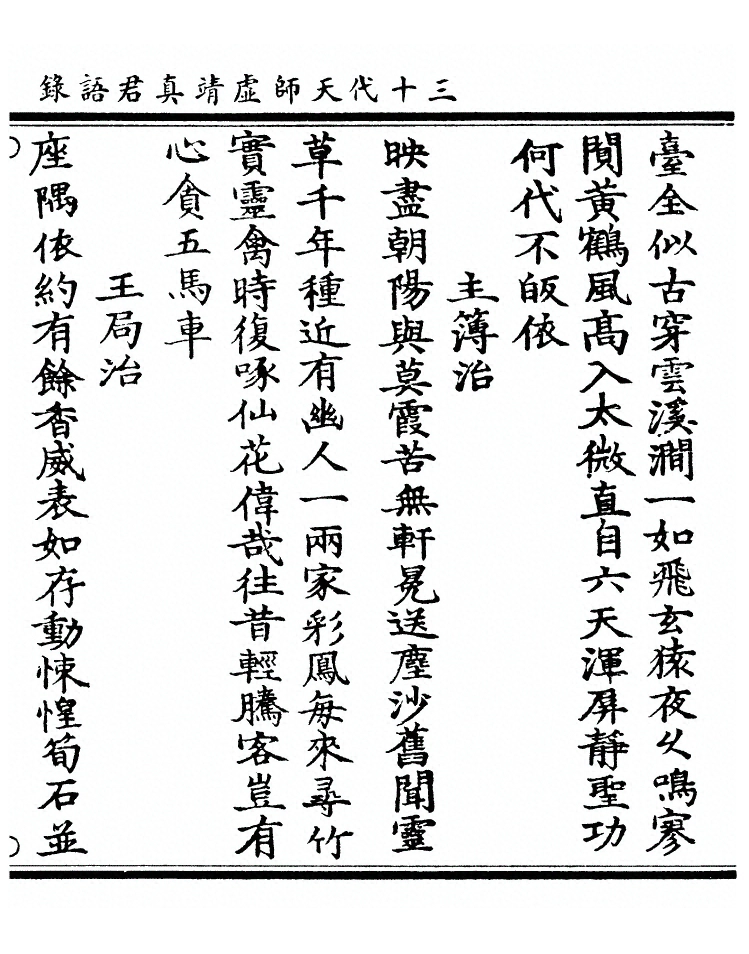 三十代天師虛靖真君語錄
臺全似古穿雲溪澗一如飛玄猿夜久鳴寥
閴黃鶴風高入太微直自六天渾屏靜聖功
何代不皈依
主簿治
映盡朝陽與莫霞苦無軒冕送塵沙舊聞靈
草千年種近有幽人一兩家彩鳳每來尋竹
實靈禽時復啄仙花偉哉往昔輕騰客豈有
心貪五馬車
王局治
座隅依約有餘香威表如存動悚惶筍石並